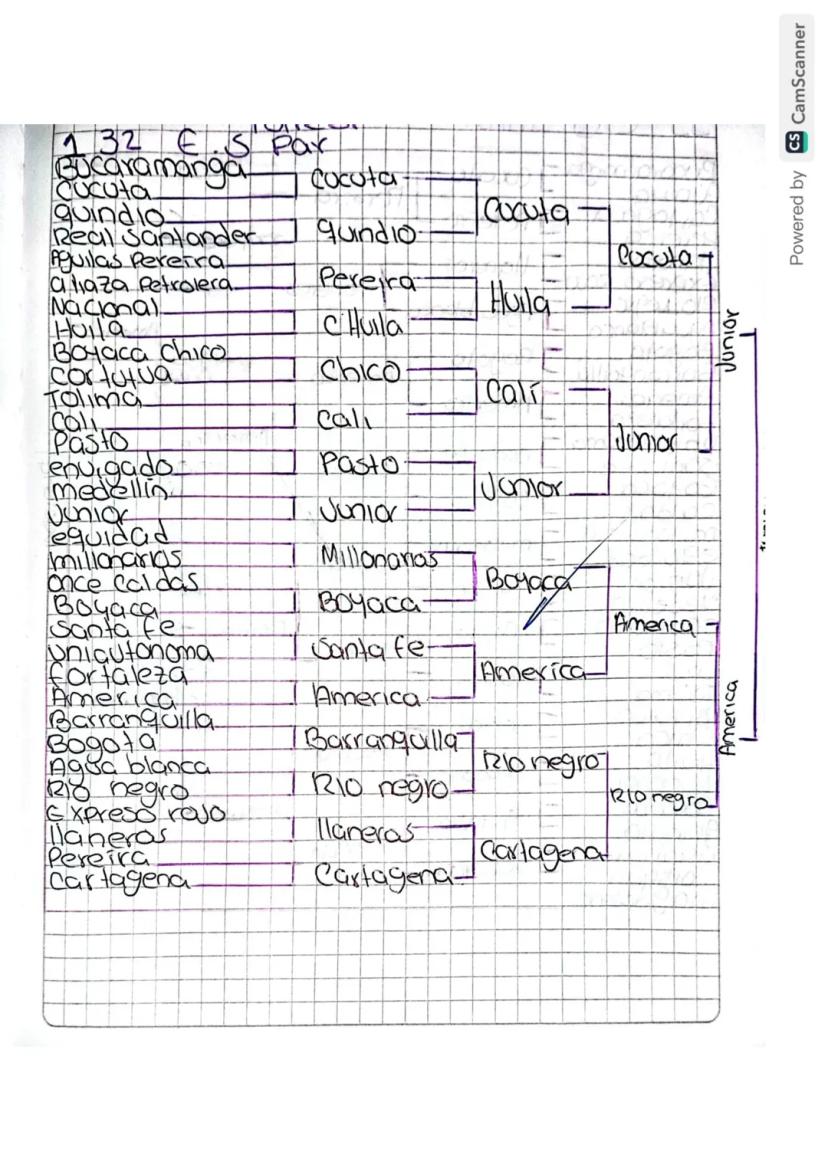 1 32 E.S Par
Bucaramanga
Cucuta
quindio
Real Santander
Aguilas Pereira
aliaza Petrolera
Nacional
Huila
Boyaca Chico
Tolima
Cali
Pasto
envigado
medellin
Junior
equidad
millonarios
once Caldas
Boyaca
Santa fe
uniautonoma
fortaleza
America
Barranquilla
Bogota
Agua blanca
Rio negro
Expreso rojo
llaneros
Pereira
Cartagena
Cucuta
quindio
Pereira
C Huila
Chico
Cali
Pasto
Junior
Millonarios
Boyaca
Santa fe
America
Barranquilla
Rio negro
llaneros
Cartagena
Cucuta
Huila
Cali
Junior
Boyaca
America
Rio negro
Cartagena
Cucuta
Junior
America
Rio negro
Junior
America
Powered by CS CamScanner